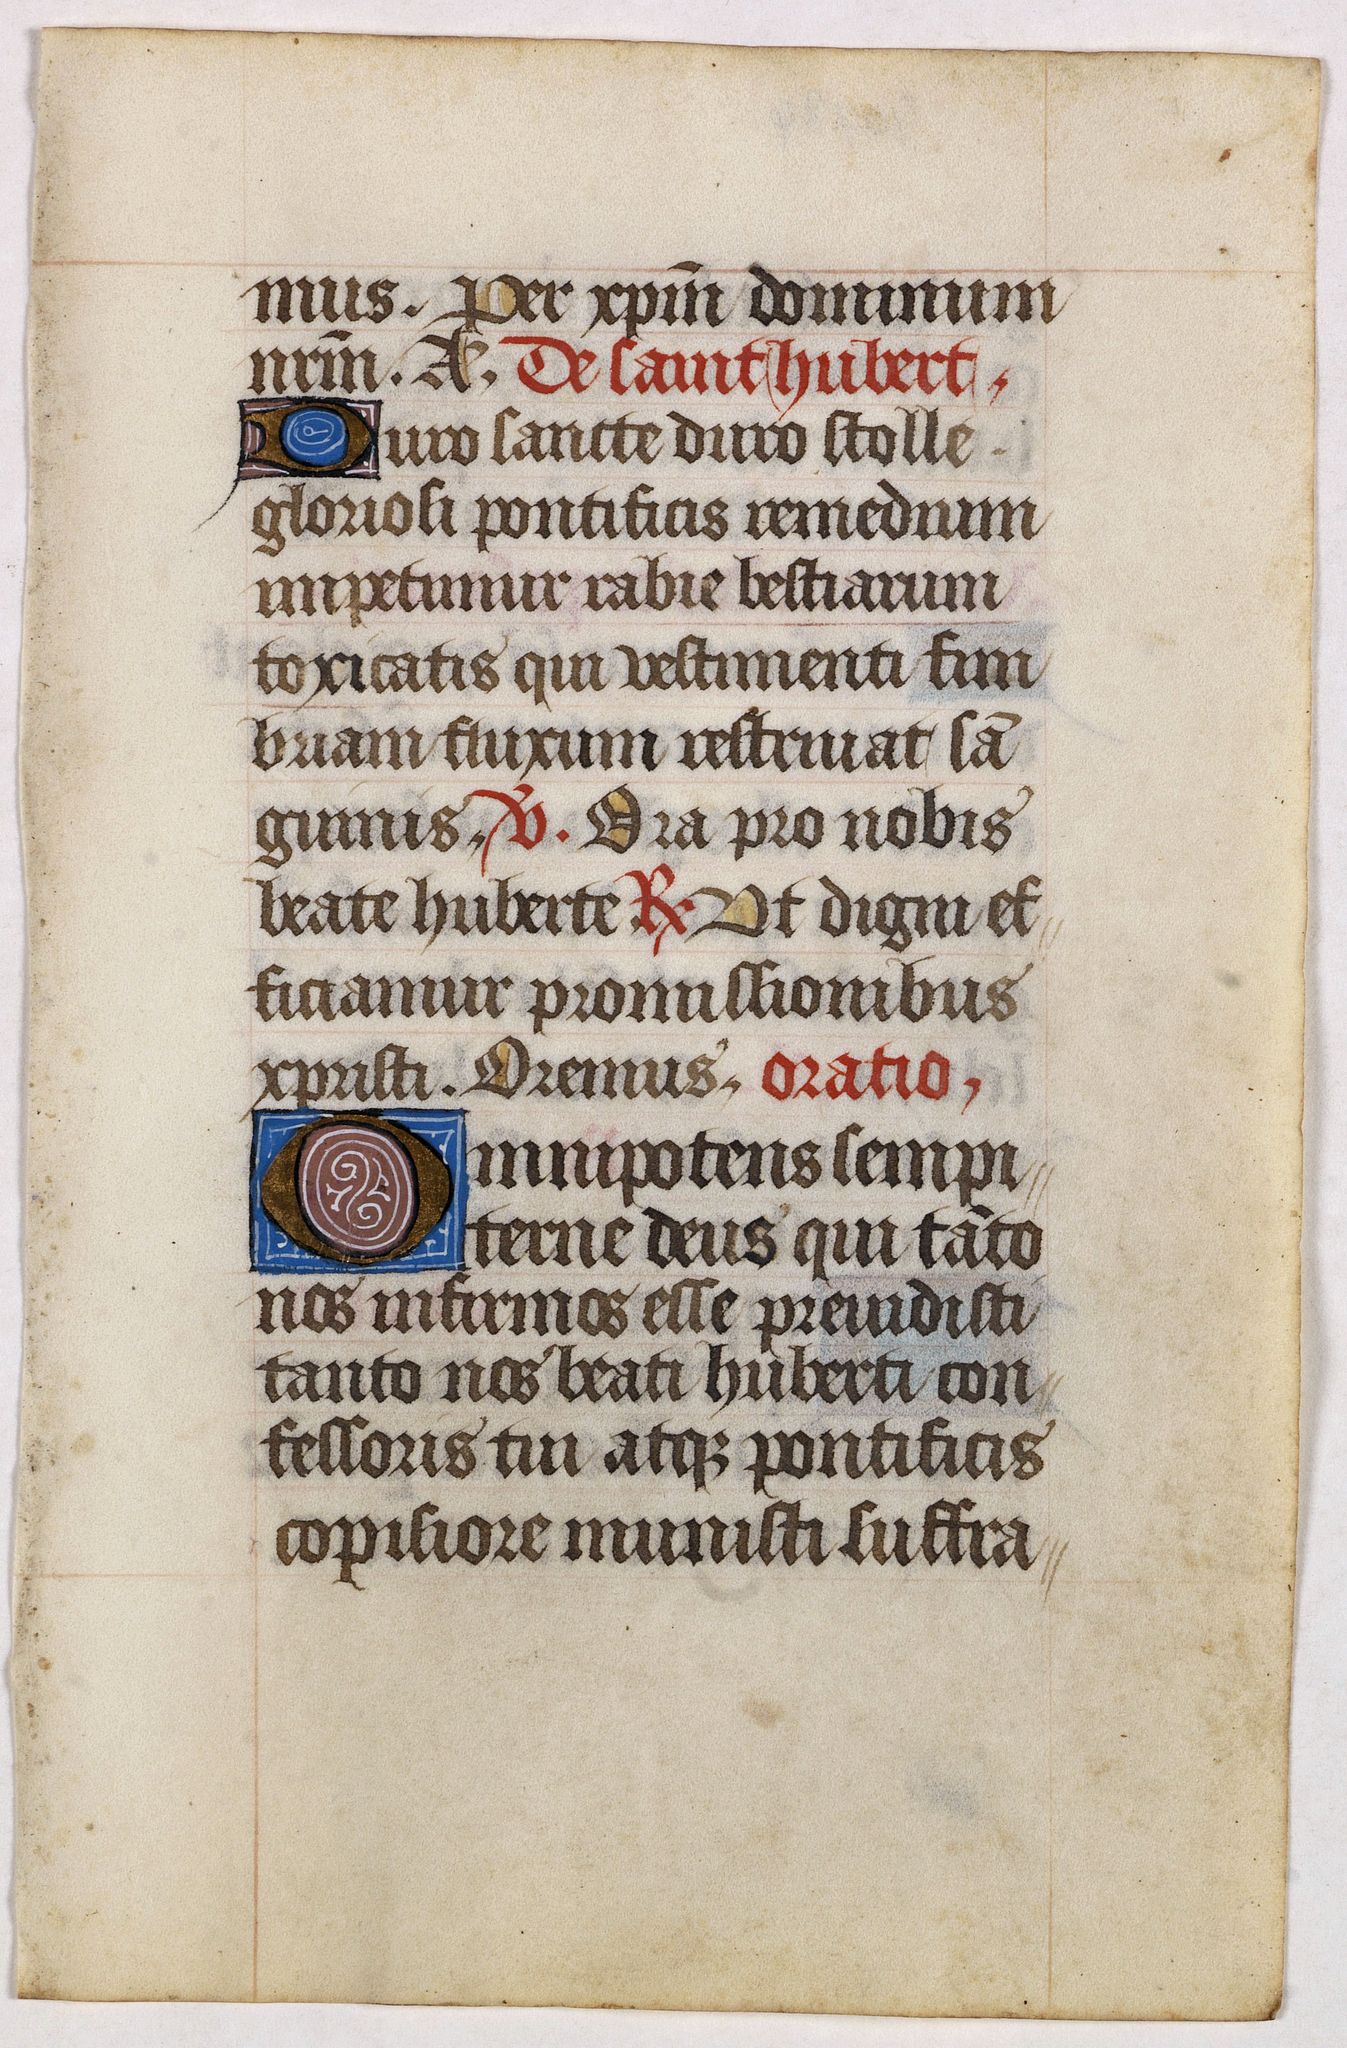 mus. Per xp̄m dominum
nr̄m. Ā. De saint hubert,
Ouro sancte duro stolle.
gloriosi pontificis remedium
impetimur rabie bestiarum
toxicatis qui vestimenti fim
briam fluxum restrinat sā
guinis, V̄. Ora pro nobis
beate huberte ℟ Vt digni ef
ficiamur promissionibus
xpristi. Oremus, oratio,
Omnipotens sempi
terne deus qui tāto
nos infirmos esse preuidisti
tanto nos beati huberti con
fessoris tui atqꝫ pontificis
copisiore munisti suffra